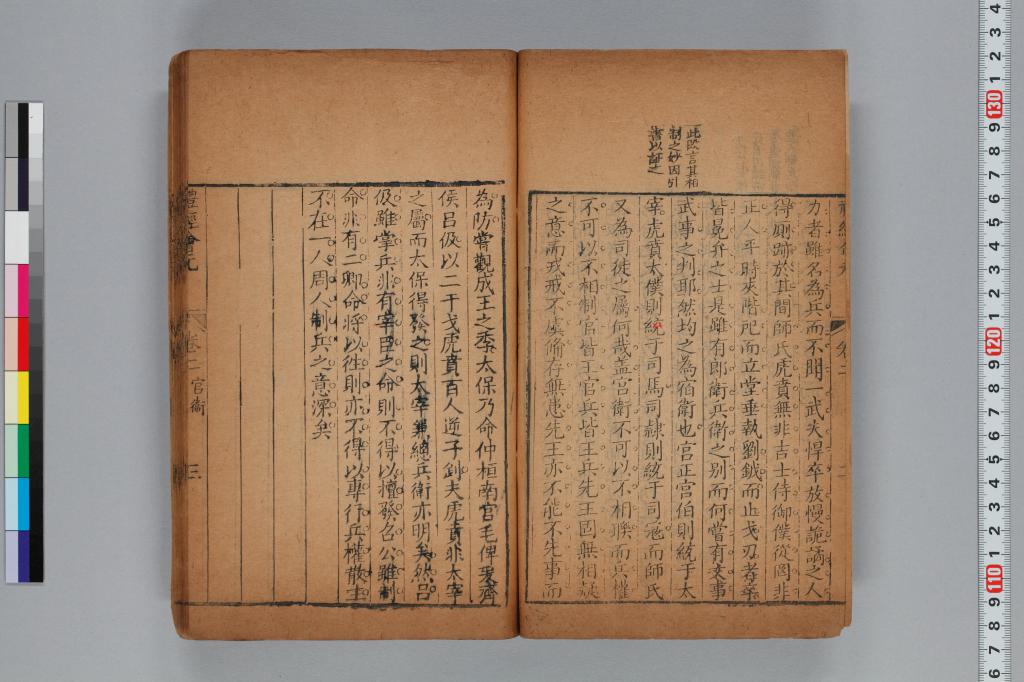 此段言其相
制之妙因引
書以証之
力者雖名為兵而不聞一武夫悍卒放慢詭譎之人
得廁跡於其間師氏虎賁無非吉士侍御僕從罔非
正人平時夾階戺而立堂垂執劉鉞而止戈刃者率
皆冕弁之士是雖有郎衛兵衛之別而何嘗有文事
武事之判耶然均之為宿衛也宮正宮伯則統于太
宰虎賁太僕則統于司馬司隸則統于司冦而師氏
又為司徒之屬何哉蓋宮衛不可以不相聯而兵權
不可以不相制官皆王官兵皆王兵先王固無相疑
之意而戎戒不虞脩存無患先王亦不能不先事而
為防嘗觀成王之季太保乃命仲桓南宮毛俾爰齊
侯呂伋以二干戈虎賁百人逆子釗夫虎賁非太宰
之屬而太保得發之則太宰兼總兵衛亦明矣然呂
伋雖掌兵非有宰臣之命則不得以擅發召公雖制
命非有二卿命將以往則亦不得以專行兵權散主
不在一人周人制兵之意深矣
禮經會元
卷二 宮衛
三